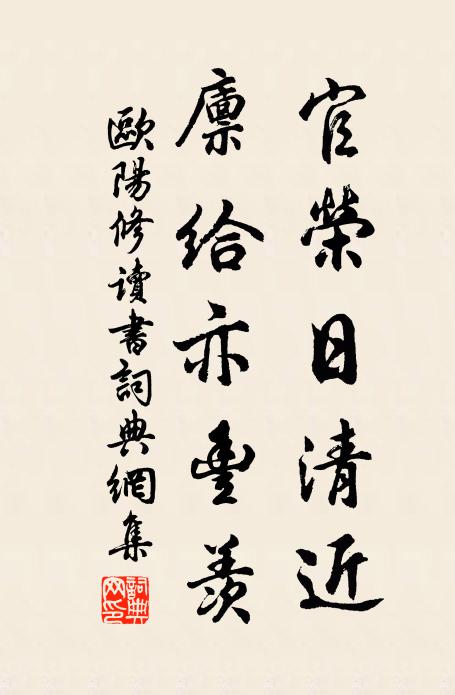 官榮日清近
廩給亦豐羨
歐陽修讀書詞典網集
詞典网印